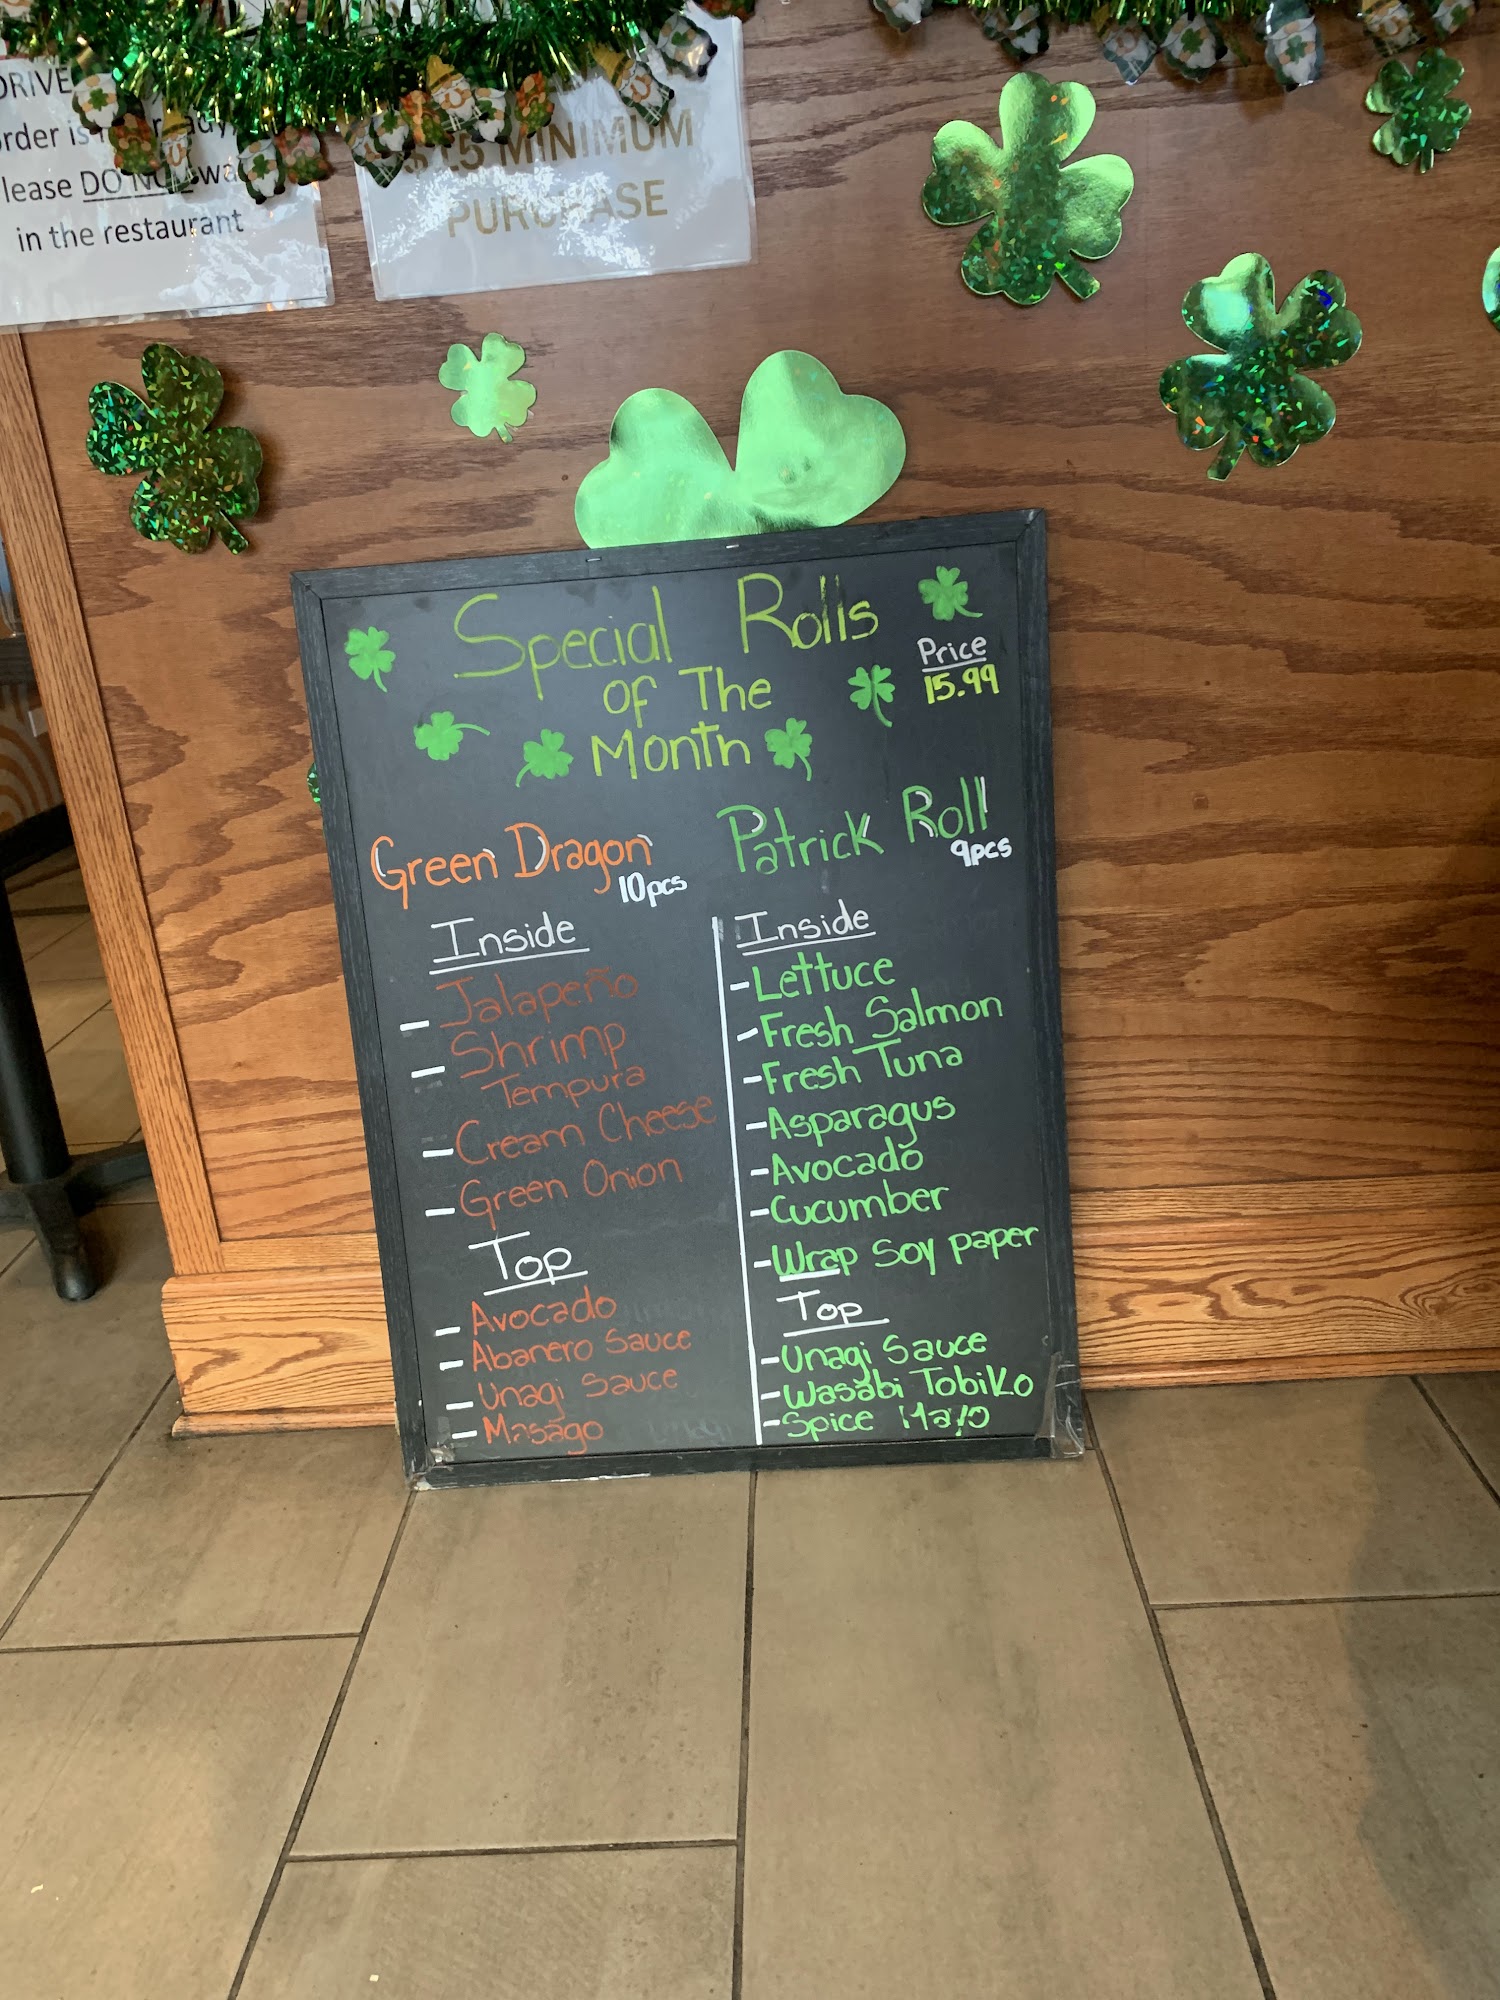 DRIVE
order is ready
lease DO NOT
in the restaurant
MINIMUM
PURCHASE
Special Rolls
of The
Month
Price
15.99
Green Dragon
10pcs
Inside
- Jalapeño
- Shrimp
Tempura
- Cream Cheese
- Green Onion
Top
- Avocado
- Abanero Sauce
- Unagi Sauce
- Masago
Patrick Roll
9pcs
Inside
- Lettuce
- Fresh Salmon
- Fresh Tuna
- Asparagus
- Avocado
- Cucumber
- Wrap Soy paper
Top
- Unagi Sauce
- Wasabi Tobiko
- Spice Mayo